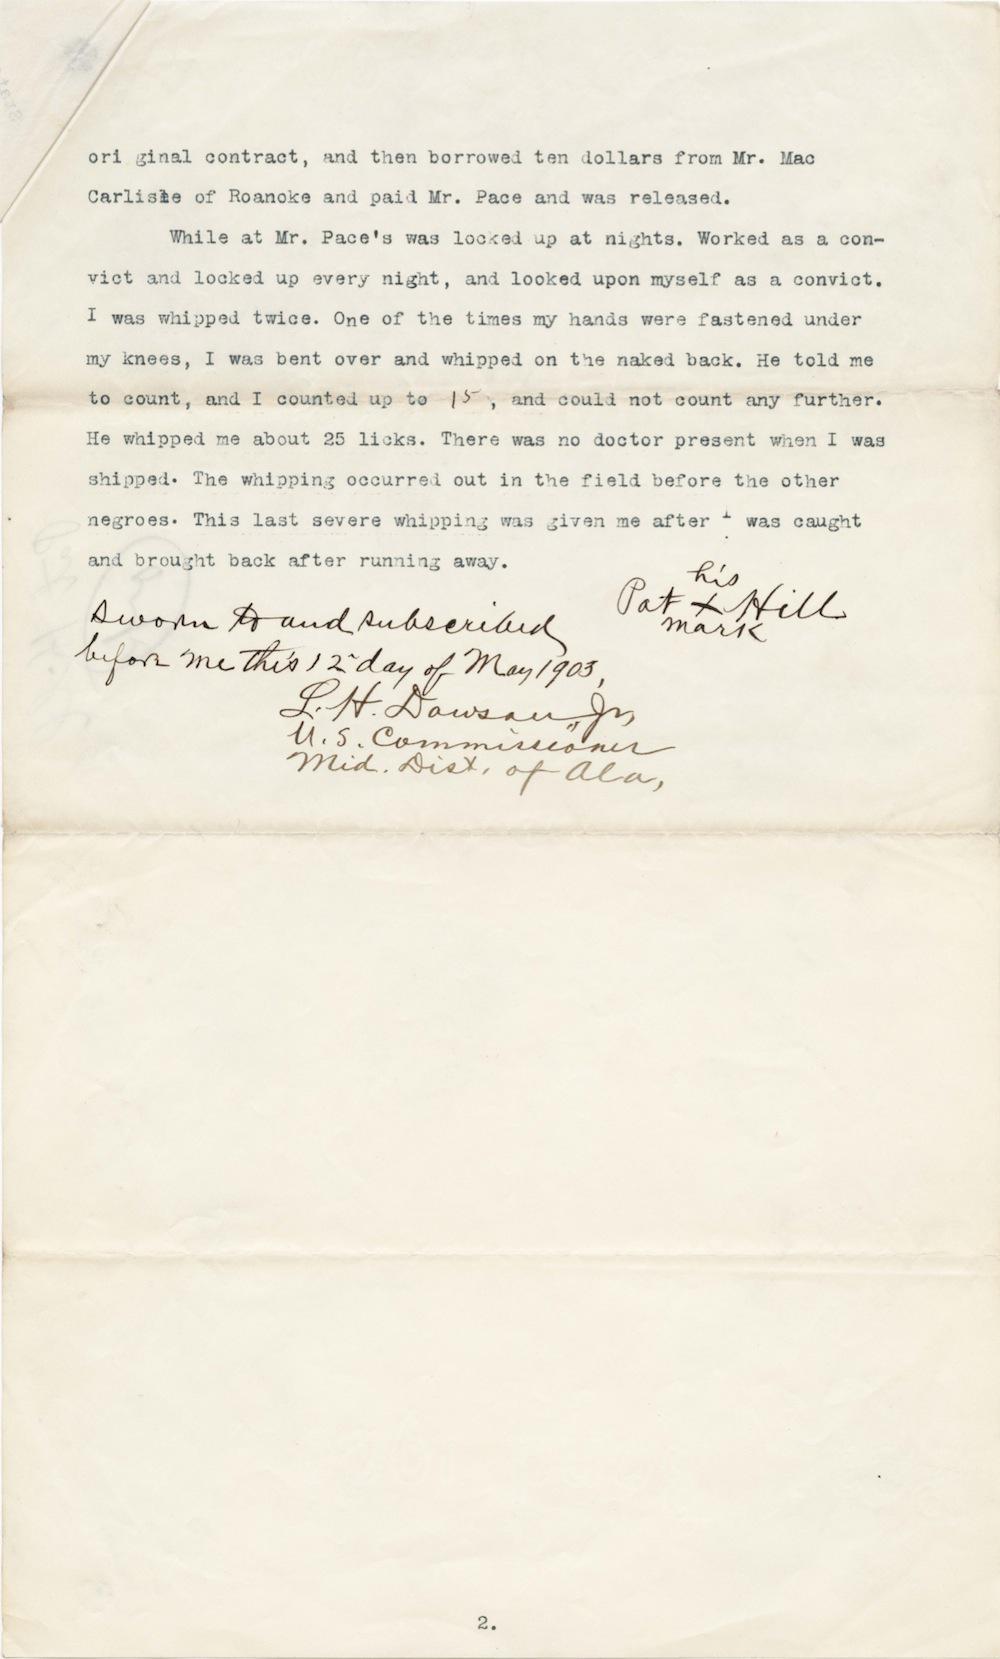 ori ginal contract, and then borrowed ten dollars from Mr. Mac
Carlisle of Roanoke and paid Mr. Pace and was released.
While at Mr. Pace's was locked up at nights. Worked as a con-
vict and locked up every night, and looked upon myself as a convict.
I was whipped twice. One of the times my hands were fastened under
my knees, I was bent over and whipped on the naked back. He told me
to count, and I counted up to 15, and could not count any further.
He whipped me about 25 licks. There was no doctor present when I was
shipped. The whipping occurred out in the field before the other
negroes. This last severe whipping was given me after I was caught
and brought back after running away.
his
Pat X Hill
mark
Sworn to and subscribed
before me this 12 day of May 1903,
L. H. Dawson, Jr,
U. S. Commissioner
Mid. Dist. of Ala,
2.